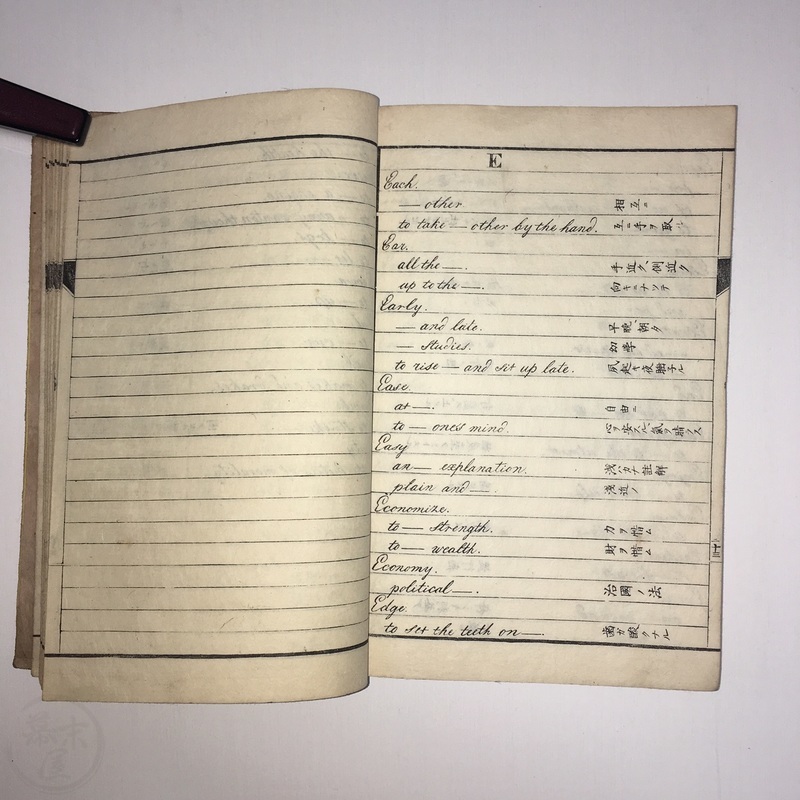 E
Each.
— other 相互ニ
to take — other by the hand. 互ニ手ヲ取ル
Ear.
all the —. 手近ク、側近ク
up to the —. 向キニナツテ
Early.
— and late. 早晩、朝夕
— studies. 幼學
to rise — and sit up late. 夙起キ夜
Ease.
at —. 自由ニ
to — one's mind. 心ヲ安スル、氣ヲ晴ラス
Easy
an — explanation. 浅ハカナ註解
plain and —. 淺近ノ
Economize.
to — strength. 力ヲ惜ム
to — wealth. 財ヲ惜ム
Economy.
political —. 治國ノ法
Edge.
to set the teeth on —. 歯ガ酸クナル